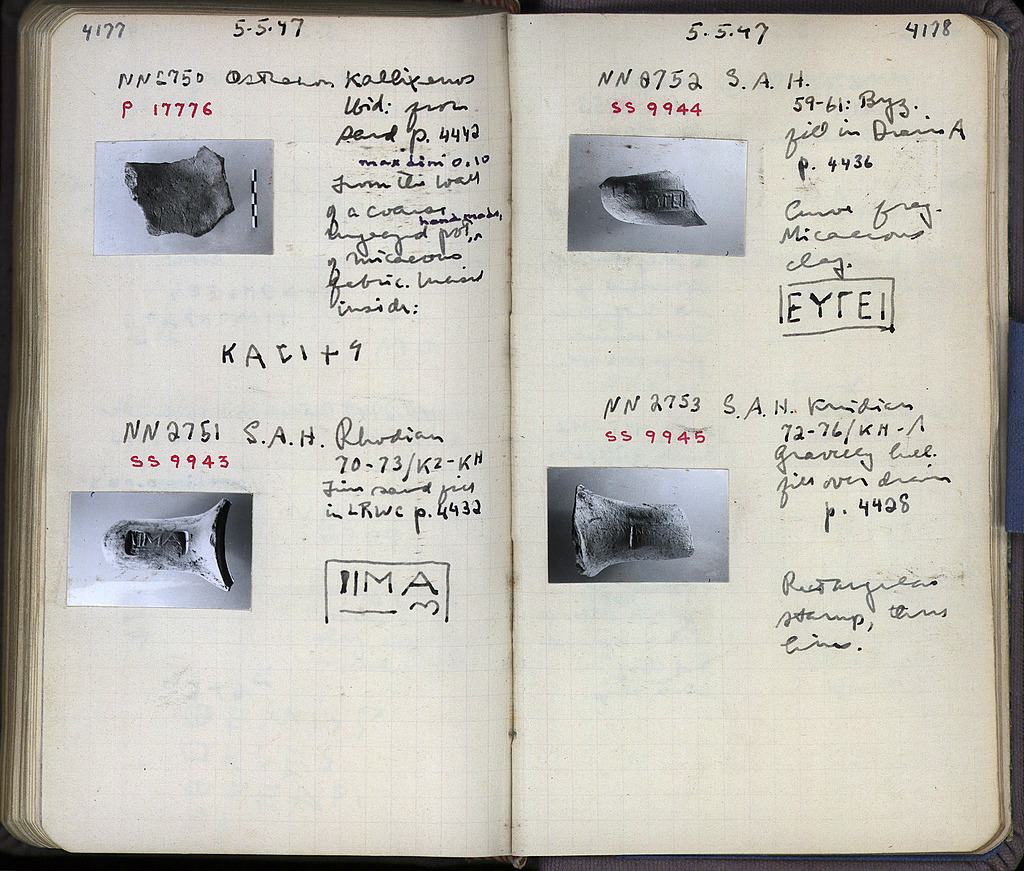 4177
5-5-47
NN2750 Ostrakon Kallixenos
P 17776
Ibid: from
sand p. 4442
max dim 0.10
From the wall
of a coarse
hand made,
pot,
of micaceous
fabric. Incised
inside:
ΚΑ Ι + 9
NN2751 S.A.H. Rhodian
SS 9943
70-73/ΚΖ-ΚΗ
Fine sand fill
in LRWC p. 4432
ΙΙΜΑ
4178
5.5.47
NN2752 S.A.H.
SS 9944
59-61: Byz.
fill in Drain A
p. 4436
Curve frag.
Micaceous
clay.
ΕΥΓΕΙ
NN2753 S.A.H. Knidian
SS 9945
72-76/ΚΗ-Λ
Gravelly hell.
fill over drain
p. 4428
Rectangular
stamp, three
lines.